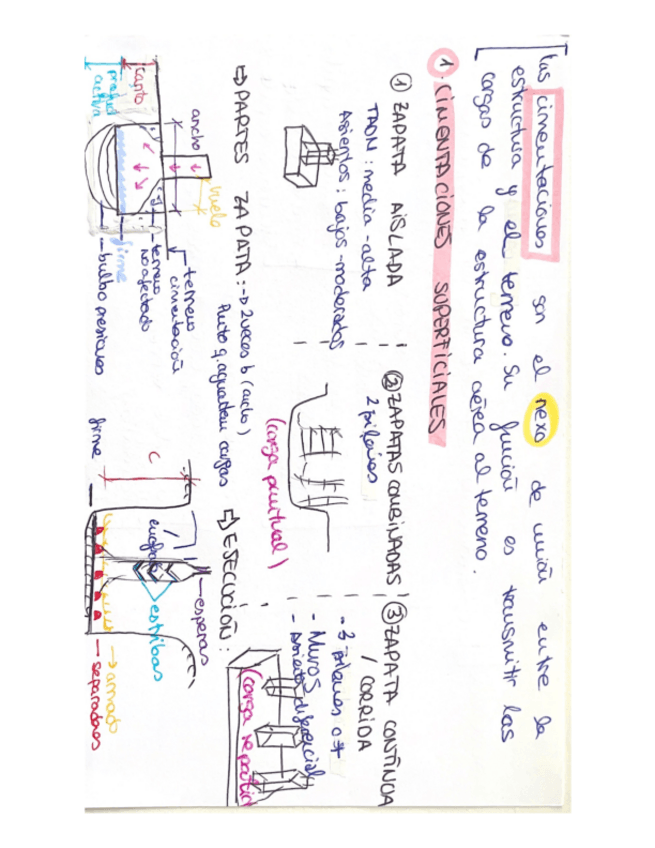 Las cimentaciones son el nexo de unión entre la
estructura y el terreno. Su función es transmitir las
cargas de la estructura aérea al terreno.
1. CIMENTACIONES SUPERFICIALES
① ZAPATA AISLADA
TADN: media-alta
Asientos: bajos-moderados
② ZAPATAS COMBINADAS
2 pilares
(carga puntual)
③ ZAPATA CONTINUA
/ CORRIDA
- 3 pilares o +
- Muros
- Asientos diferenciales
(carga repartid
⇒ PARTES ZAPATA: → 2 veces b (ancho)
Punto q. aguantan cargas
ancho
vuelo
canto
profund
activa
terreno
cimentación
terreno
no afectado
firme
bulbo presiones
⇒ EJECUCIÓN:
esperas
estribos
armado
separadores
C
firme